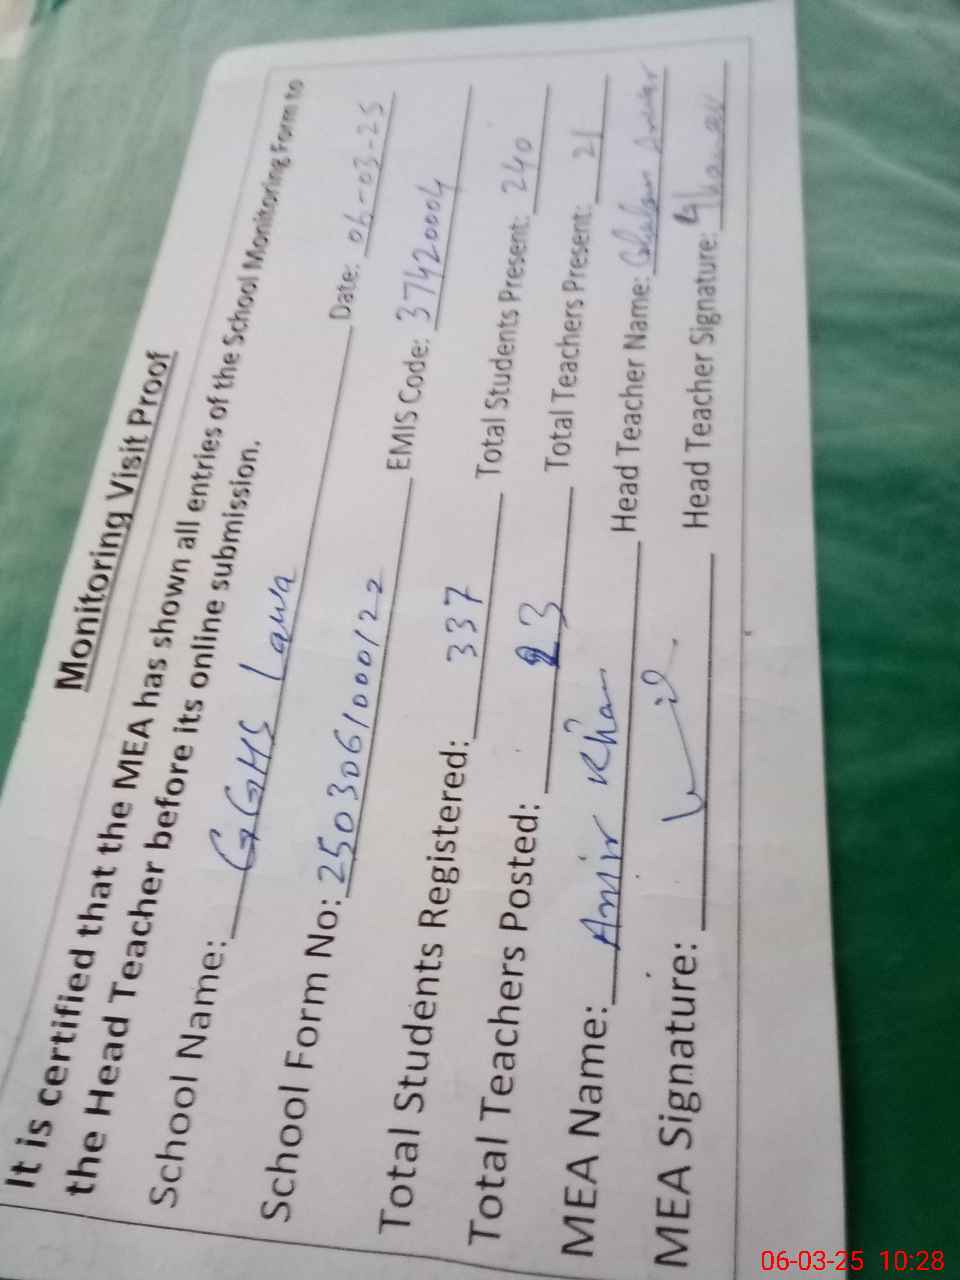 Monitoring Visit Proof
It is certified that the MEA has shown all entries of the School Monitoring Form to
the Head Teacher before its online submission.
School Name: GGHS Lawa Date: 06-03-25
School Form No: 2503061000122 EMIS Code: 37420004
Total Students Registered: 337 Total Students Present: 240
Total Teachers Posted: 23 Total Teachers Present: 21
MEA Name: Amir Khan Head Teacher Name:
MEA Signature: Head Teacher Signature:
06-03-25 10:28